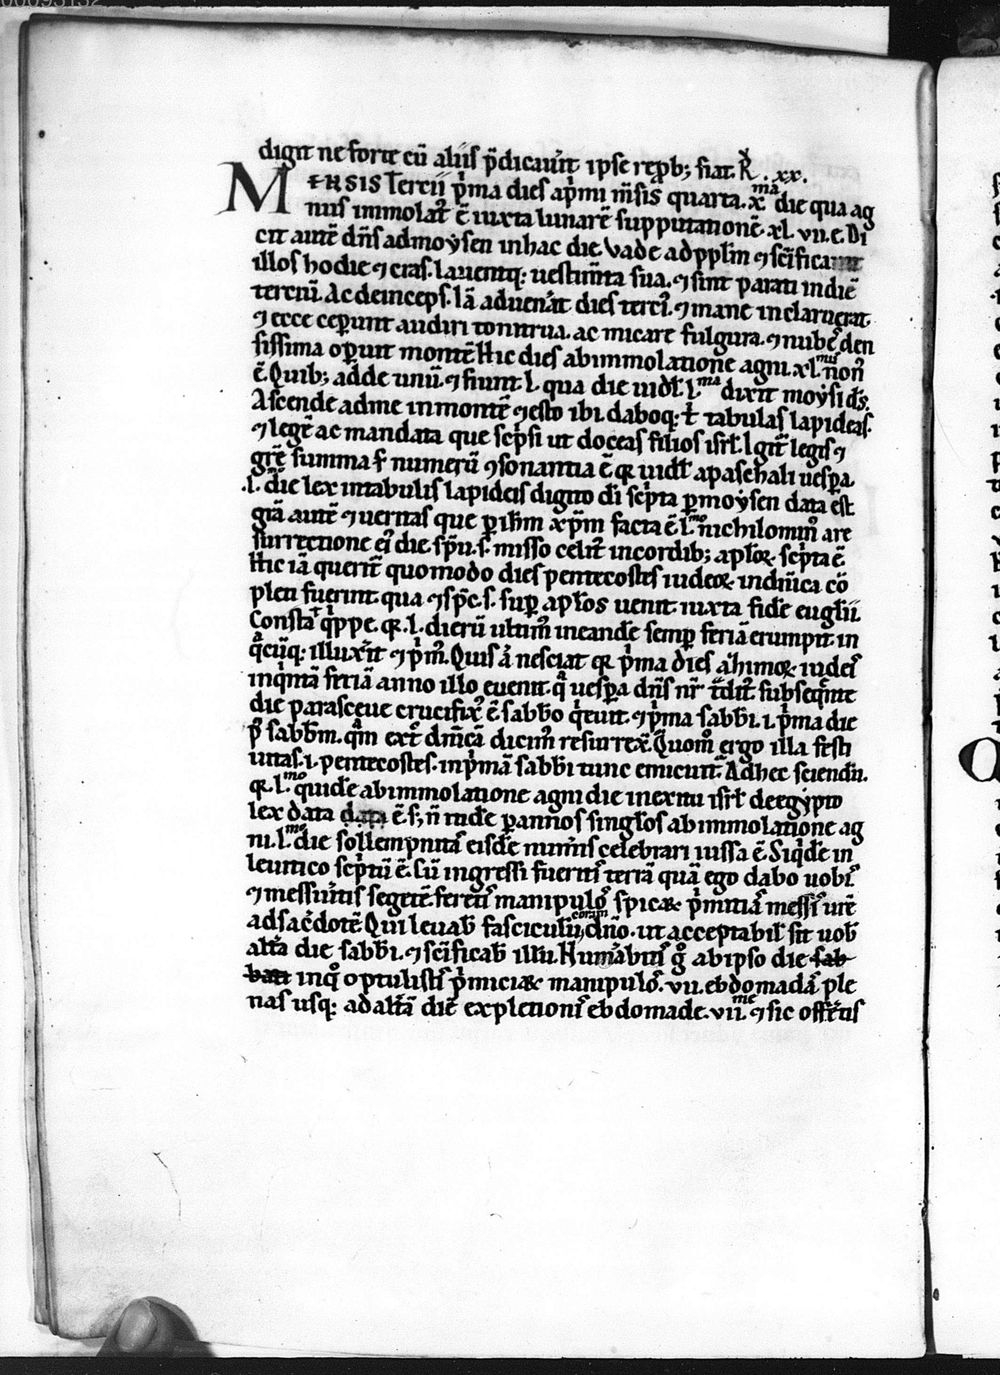 digit ne forte cū aliis p̄dicauīt ipse rep̱b; fiat. R̽ .xx.
MENSIS Tercii pͥma dies apͥmi m̄sis quarta. xͫᵃ die qua ag
nus immolať ē iuxta lunarē supputationē .xl. vii. e. Di
cit autē dn̄s admoẏsen inhac die. Vade adpplm̄ ⁊ scīfica
illos hodie ⁊ cras. lauentq: uestim̄ta sua. ⁊ sint parati indiē
terciū. Ac deinceps. Iā aduen̓at dies terciꝰ. ⁊ mane inclaruerat
⁊ ecce cep̱unt audiri tonitrua. ac micare fulgura. ⁊ nubeſ den
sissima op̱uit montē. Hic dies abimmolatione agni .xl.ᵐᵘˢ nonꝰ
ē. Quib; adde unū. ⁊ fiunt .l. qua die uidł .l.ᵐᵃ dixit moẏsi d̄s.
Ascende adme in montē ⁊ esto ibi. daboq: ť tabulas lapideas.
⁊ legē ac mandata que scͥpsi ut doceas filios isrł. lgiť legis ⁊
grē summa s. numerū ⁊ sonantia ē. qꝛ uidł apaschali uesp̱a
.l.ᵐᵉ die lex intabulis lapideis digito di scͥpta p̱ moysen data est
gīa autē ⁊ ueritas que p̱ ihm̄ xp̄m facta ē .l.ᵐᵒ nichilominꝰ are
surrectione eiꝰ die. sp̄u. s. misso celitꝰ incordib; aplōꝝ scͥpta ē
Hic iā queriť quomodo dies pentecostes iudeoꝝ indn̄ica cō
pleti fuerint qua ⁊ sp̄c. s. sup̱ aplōs uenit iuxta fidē eugl̄ii.
Constať qͥppe. qꝛ .l. dierū ultimꝰ ineandē semp̱ feriā erumpit in
qͣcūq: illux̓it ⁊ pͥmꝰ. Quis aū nesciat qꝛ pͥma dies ahimoꝝ iudeis
inqͥntā feriā anno illo euenit. qͣ uesp̱a dn̄s nr̄ t̄ditꝰ subseqͥente
die parasceue crucifixꝰ ē. sabb̄o qͥeuit. ⁊ pͥma sabb̄i. i. pͥma die
p̱ sabb̄m. qͣm exť dn̄icā dicimꝰ resurrex̄. Quomͦ ergo illa festi
uitas. i. pentecostes. inpͥmā sabb̄i tunc emicuit. Adhec sciendū.
qꝛ .l.ᵐᵒ quidē abimmolatione agni die inexitu isrł deegẏpto
lex data data ē. s; n̄ indē p̱annos singłos abimmolatione ag
ni .l.ᵐᵉ die sollempnitaſ eisdē num̄is celebrari iussa ē. Siqͥdē in
leuitico scͥptū ē. Cū ingressi fueritiſ terrā quā ego dabo uobiſ
⁊ messuͥitis segetē. feretiſ manipuloſ spicaꝝ pͥmitiaſ messiſ urē
adsac̓dotē. Qui leuab̄ fasciculū coram dn̄o. ut acceptabił sit uob̄
alťa die sabb̄i. ⁊ scīficab̄ illū. Num̓abitiſ gͦ abipso die sab
bati inqͦ optulistiſ pͥmiciaꝝ manipuloſ .vii. ebdomadaſ ple
nas usq: adalťā diē expletioniſ ebdomade .vii.ᵐᵉ ⁊ sic offeřtis